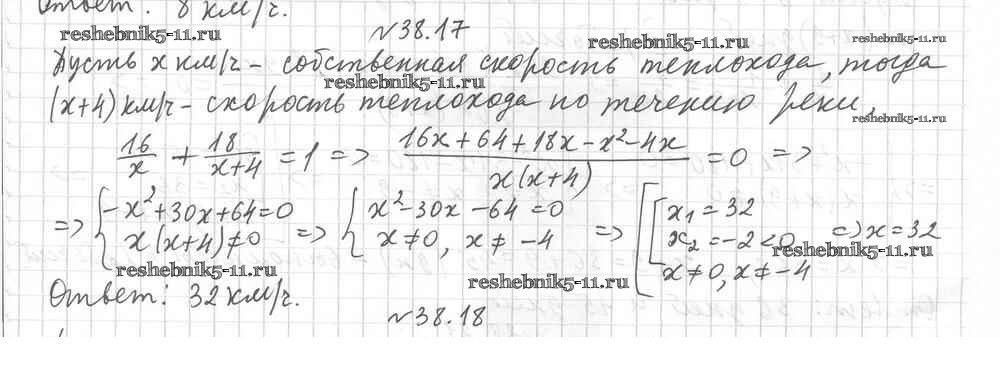 Ответ: 8 км/ч.
reshebnik5-11.ru
№38.17
reshebnik5-11.ru
reshebnik5-11.ru
Пусть x км/ч - собственная скорость теплохода, тогда
reshebnik5-11.ru
(x+4) км/ч - скорость теплохода по течению реки,
reshebnik5-11.ru
16/x + 18/(x+4) = 1 => (16x+64+18x-x²-4x)/(x(x+4)) = 0 =>
=> { -x²+30x+64=0 => { x²-30x-64=0 => [ [ x₁=32
x(x+4)≠0 x≠0, x≠-4 x₂=-2<0 => x=32
x≠0, x≠-4
reshebnik5-11.ru
reshebnik5-11.ru
reshebnik5-11.ru
Ответ: 32 км/ч.
№38.18